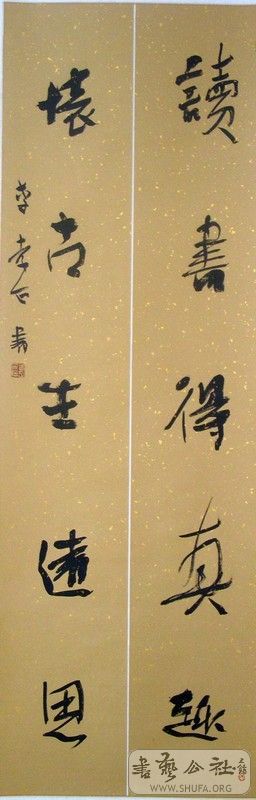 讀書得真趣
懷古生遠思
書藝公社
WWW.SHUFA.ORG